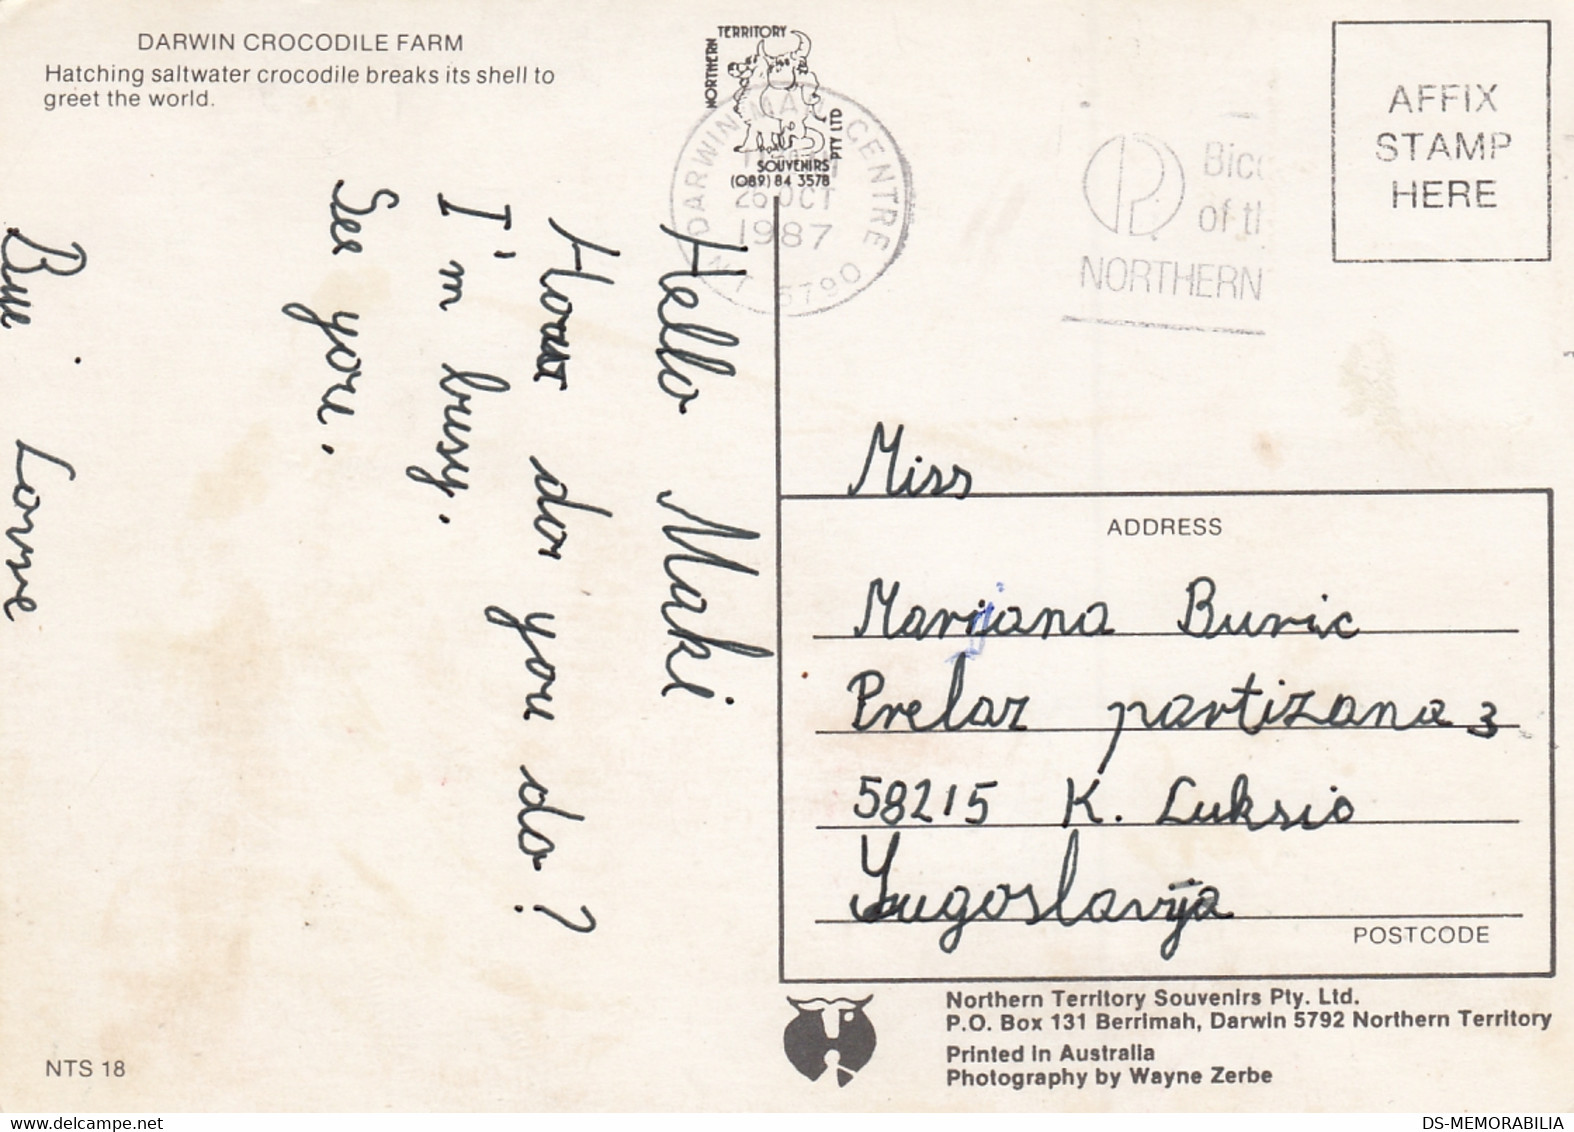 DARWIN CROCODILE FARM
Hatching saltwater crocodile breaks its shell to
greet the world.
NORTHERN TERRITORY
SOUVENIRS PTY LTD
(089) 84 3578
DARWIN MAIL CENTRE
26 OCT
1987
NT 5790
of
NORTHERN
AFFIX
STAMP
HERE
Hello Maki
How do you do?
I'm busy.
See you.
Miss
ADDRESS
Marijana Buric
Prelaz partizana 3
58215 K. Luksic
Yugoslavija
POSTCODE
Northern Territory Souvenirs Pty. Ltd.
P.O. Box 131 Berrimah, Darwin 5792 Northern Territory
Printed in Australia
Photography by Wayne Zerbe
NTS 18
DS-MEMORABILIA